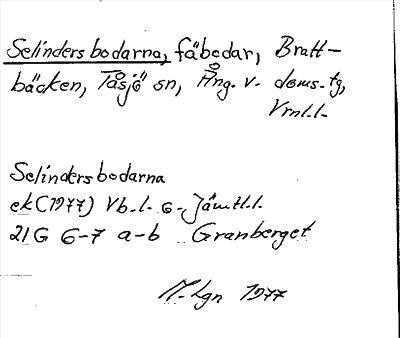 Selindersbodarna, fäbodar, Bratt-
bäcken, Tåsjö sn, Ång. v. doms.tg,
Vrnl.l.
Selindersbodarna
ek (1977) Vb.l. o. Jämtl.l.
21G 6-7 a-b Granberget
M-Lgn 1977